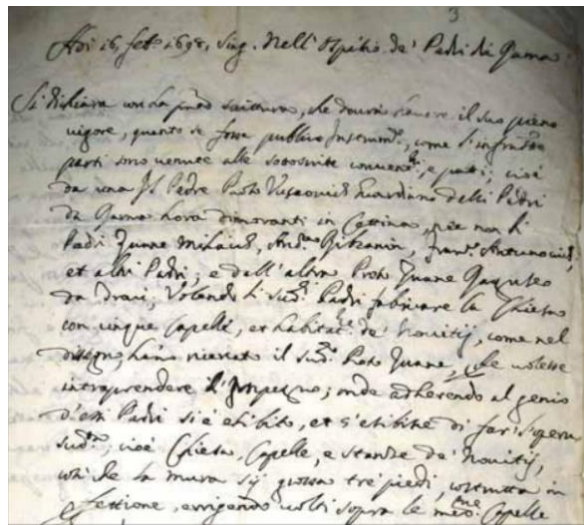 3
Adi 16, feb.° 1698, Sing. Nell'Ospitio de' Padri di Rama
Si dichiara con la pnte scrittura, che dovrà havere il suo pieno
vigore, quanto se fosse publico Instrum.to, come l'infratte
parti sono venute alle sottoscritte conven.ni, e patti; cioè
da una Il Padre Paolo Guardiano delli Padri
da Rama hora dimoranti in Cettina, nec non li
Padri Zuane And.a Fran.co
et altri Padri; e dall'altra Proto Zuane
da Volendo li sud.i Padri fabricare la Chiesa
con cinque Capelle, et habitat.ne de' Novitij, come nel
dissegno, hano ricercato il sud.o Proto Zuane, che volesse
intraprendere l'impegno; onde adherendo al genio
d'essi Padri si è esibito, et s'esibisse di far l'opera
sud.ta, cioè Chiesa, Capelle, e stanze de' Novitij,
con che la mura sij grossa tre piedi, costrutta in
erigendo volti sopra le med.me Capelle